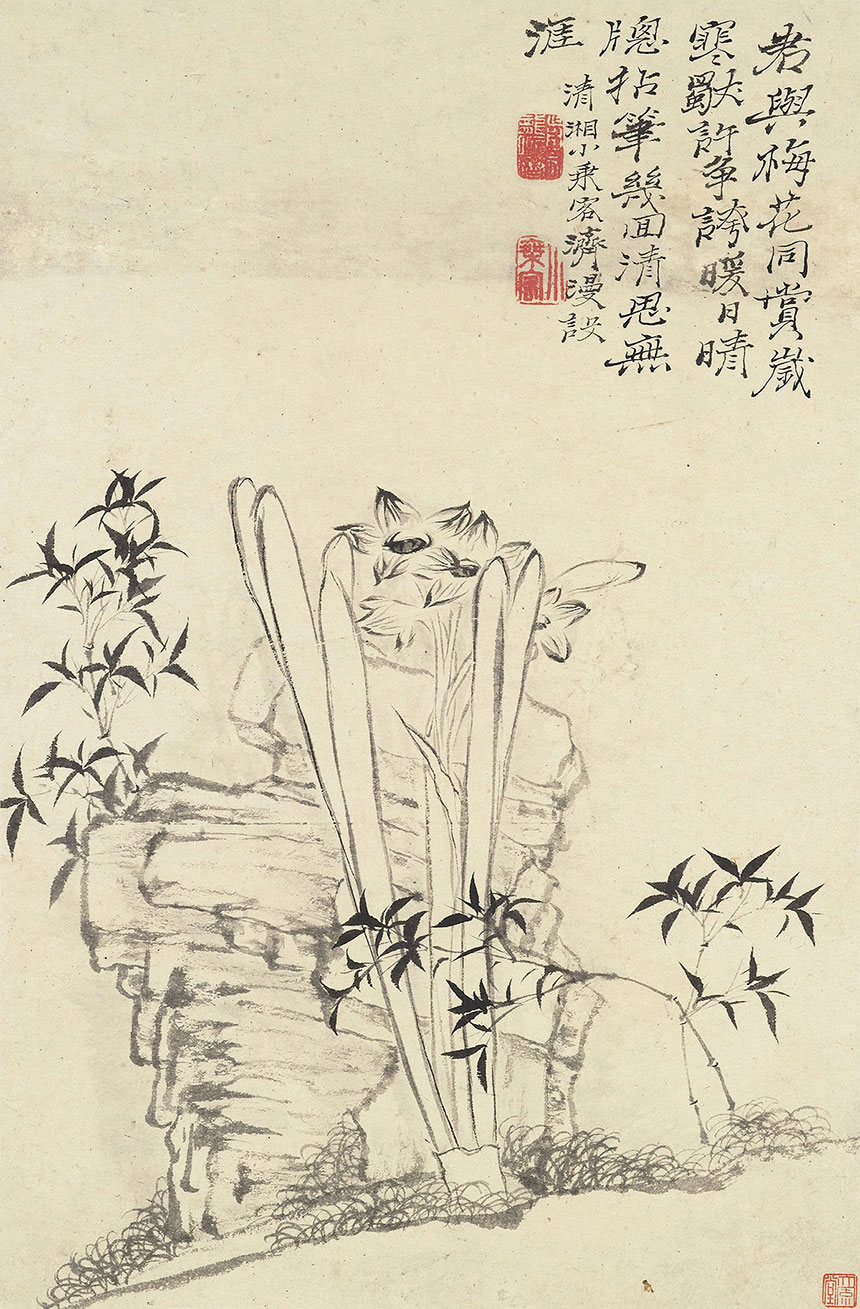 君與梅花同賞歲
寒獸許爭誇暖日晴
窗拈筆幾回清思無
涯
清湘小乘客濟漫設
小乘客